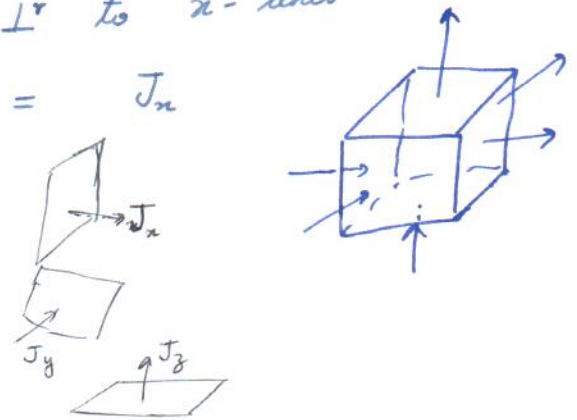 ⊥ʳ to x-
= Jx
Jx
Jy
Jz